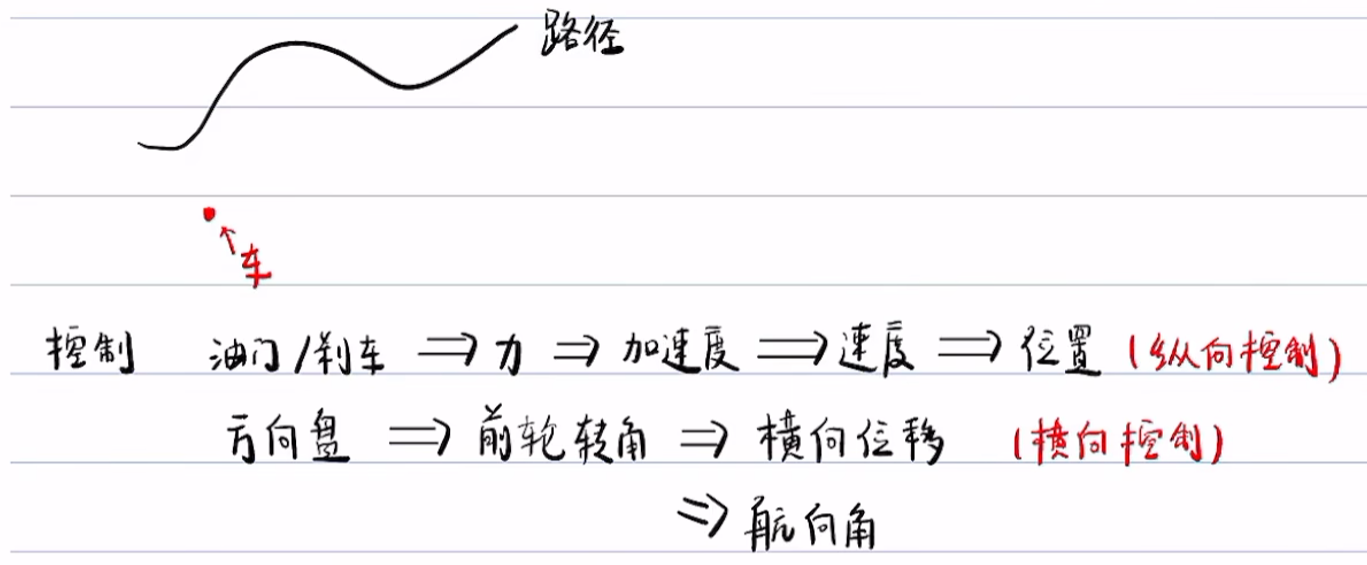 路径
↑车
控制 油门/刹车 ⇒ 力 ⇒ 加速度 ⇒ 速度 ⇒ 位置 (纵向控制)
方向盘 ⇒ 前轮转角 ⇒ 横向位移 (横向控制)
⇒ 航向角